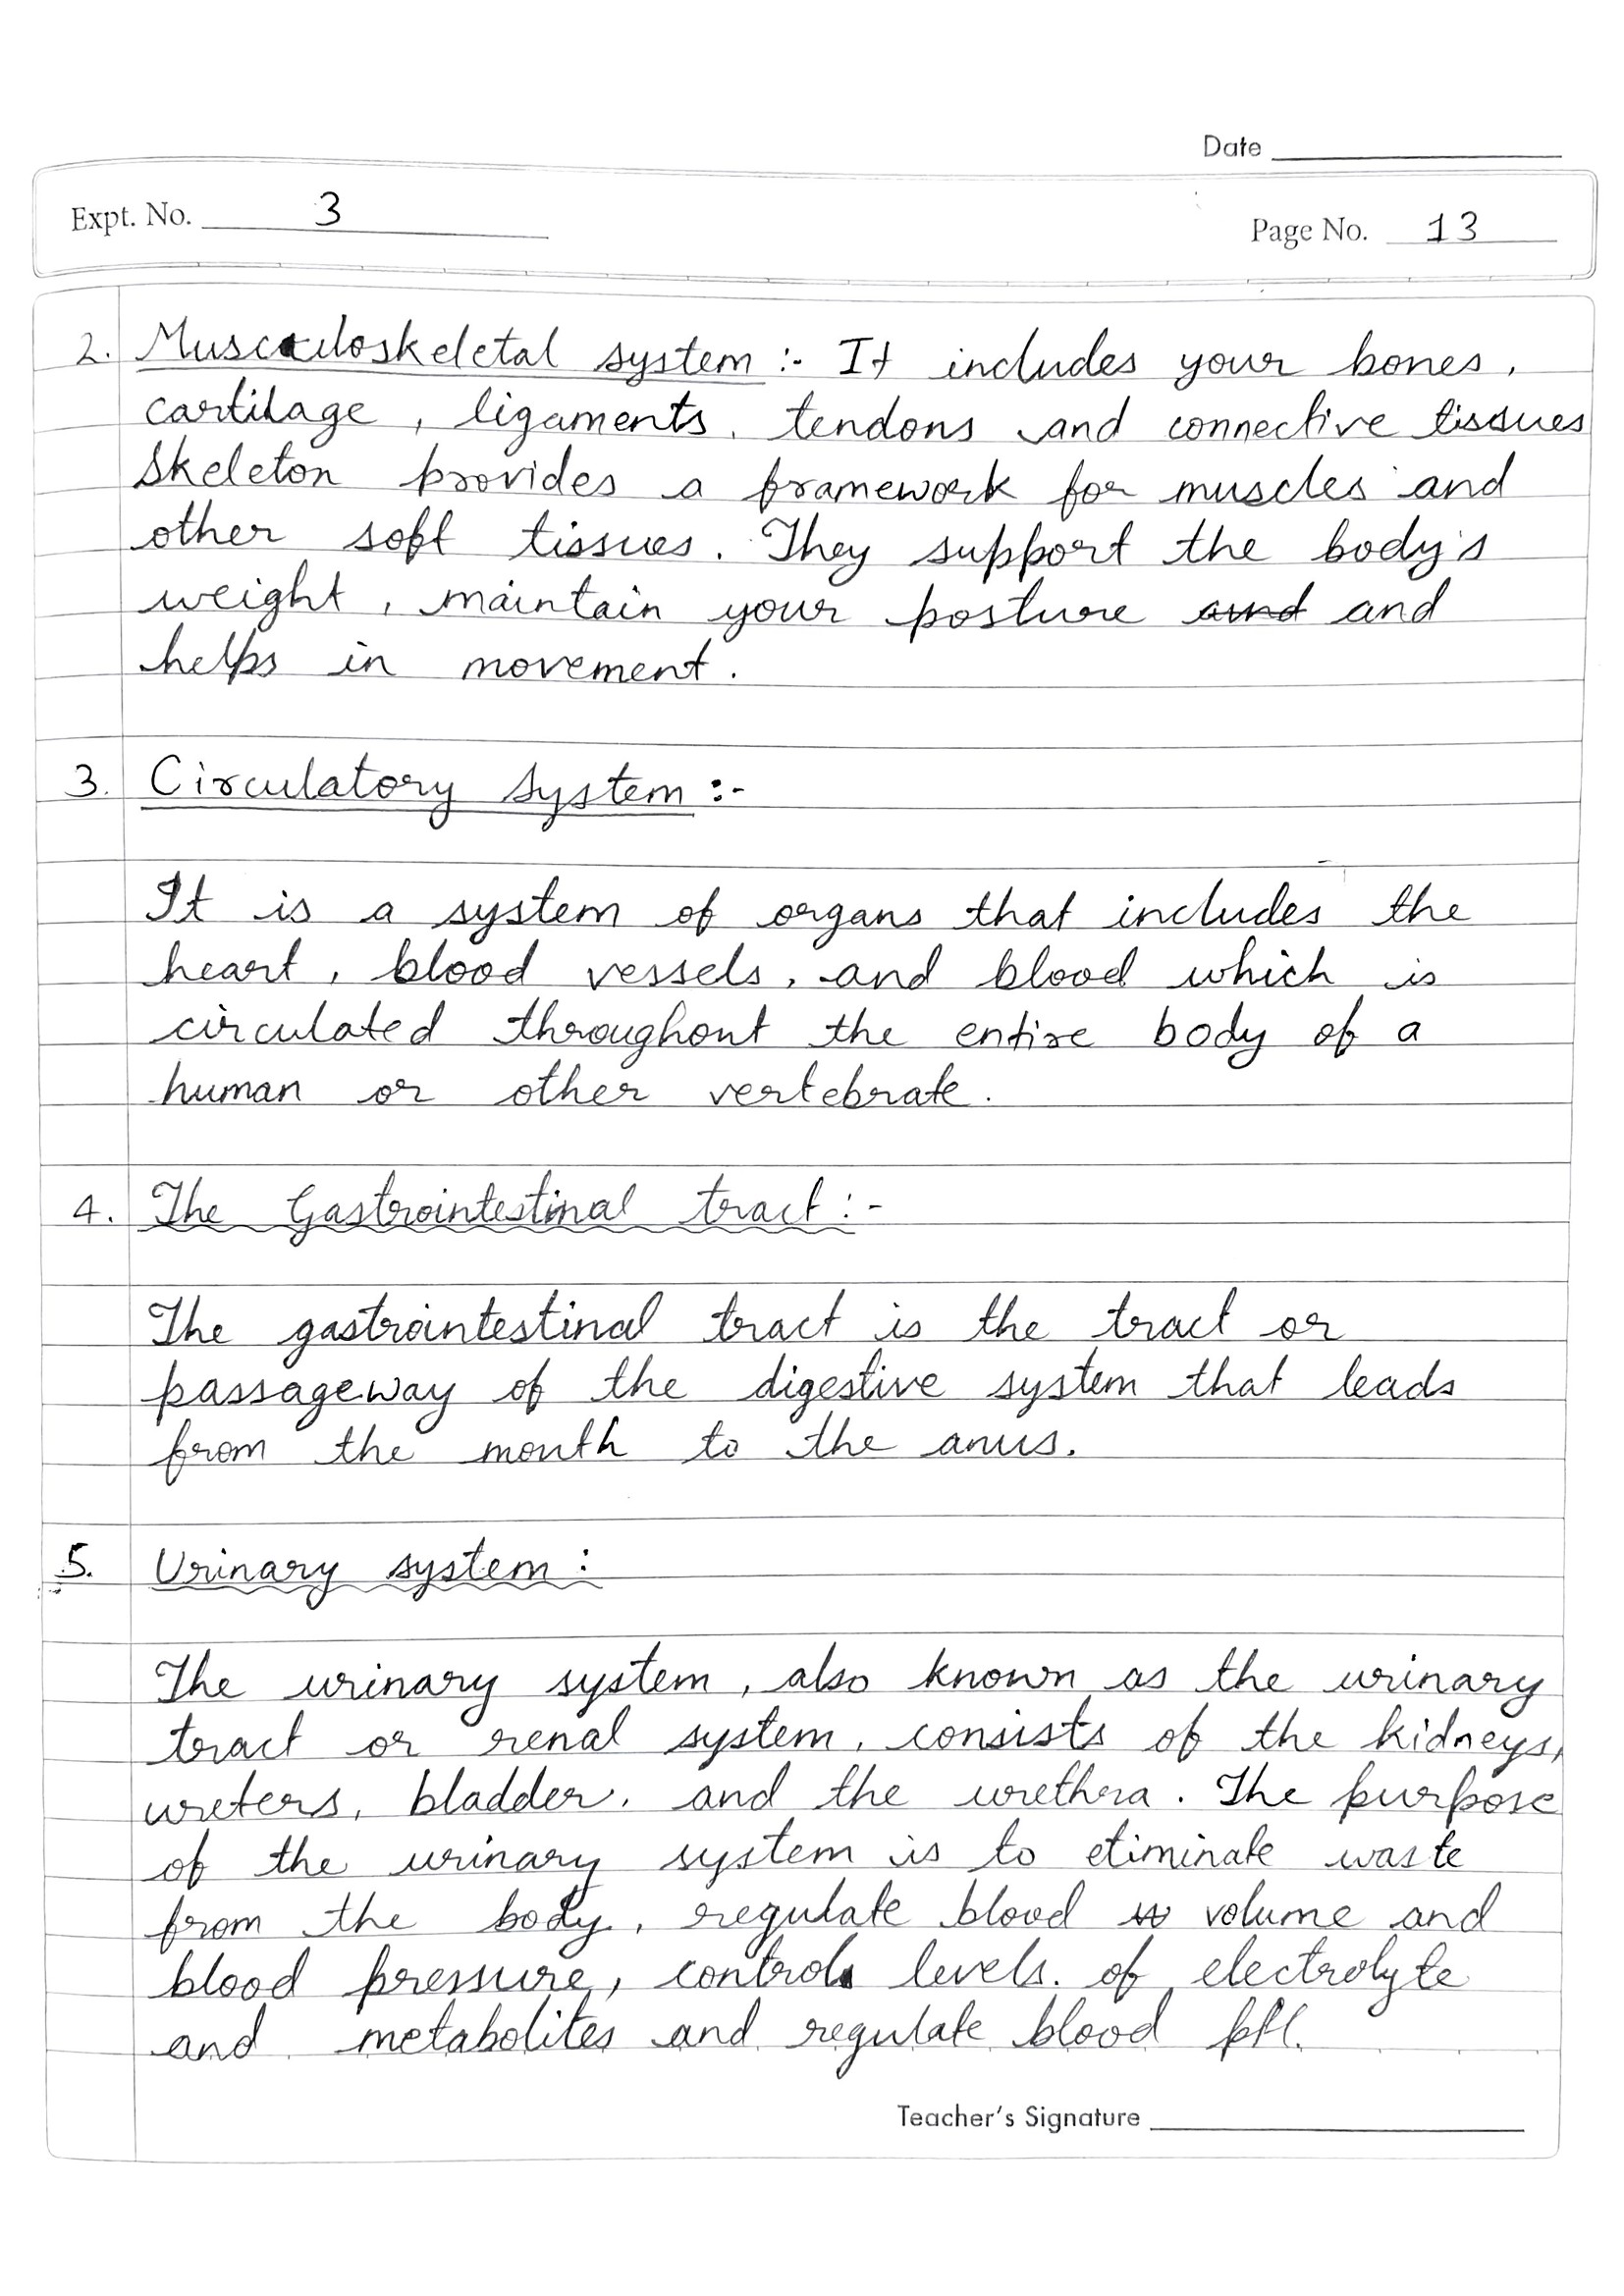 Date
Expt. No. 3
Page No. 13
2. Musculoskeletal system :- It includes your bones,
cartilage, ligaments, tendons and connective tissues
skeleton provides a framework for muscles and
other soft tissues. They support the body's
weight, maintain your posture and and
helps in movement.
3. Circulatory system :-
It is a system of organs that includes the
heart, blood vessels, and blood which is
circulated throughout the entire body of a
human or other vertebrate.
4. The Gastrointestinal tract :-
The gastrointestinal tract is the tract or
passageway of the digestive system that leads
from the mouth to the anus.
5. Urinary system :
The urinary system, also known as the urinary
tract or renal system, consists of the kidneys,
ureters, bladder, and the urethra. The purpose
of the urinary system is to etiminate waste
from the body, regulate blood volume and
blood pressure, control levels. of electrolyte
and metabolites and regulate blood pH.
Teacher's Signature